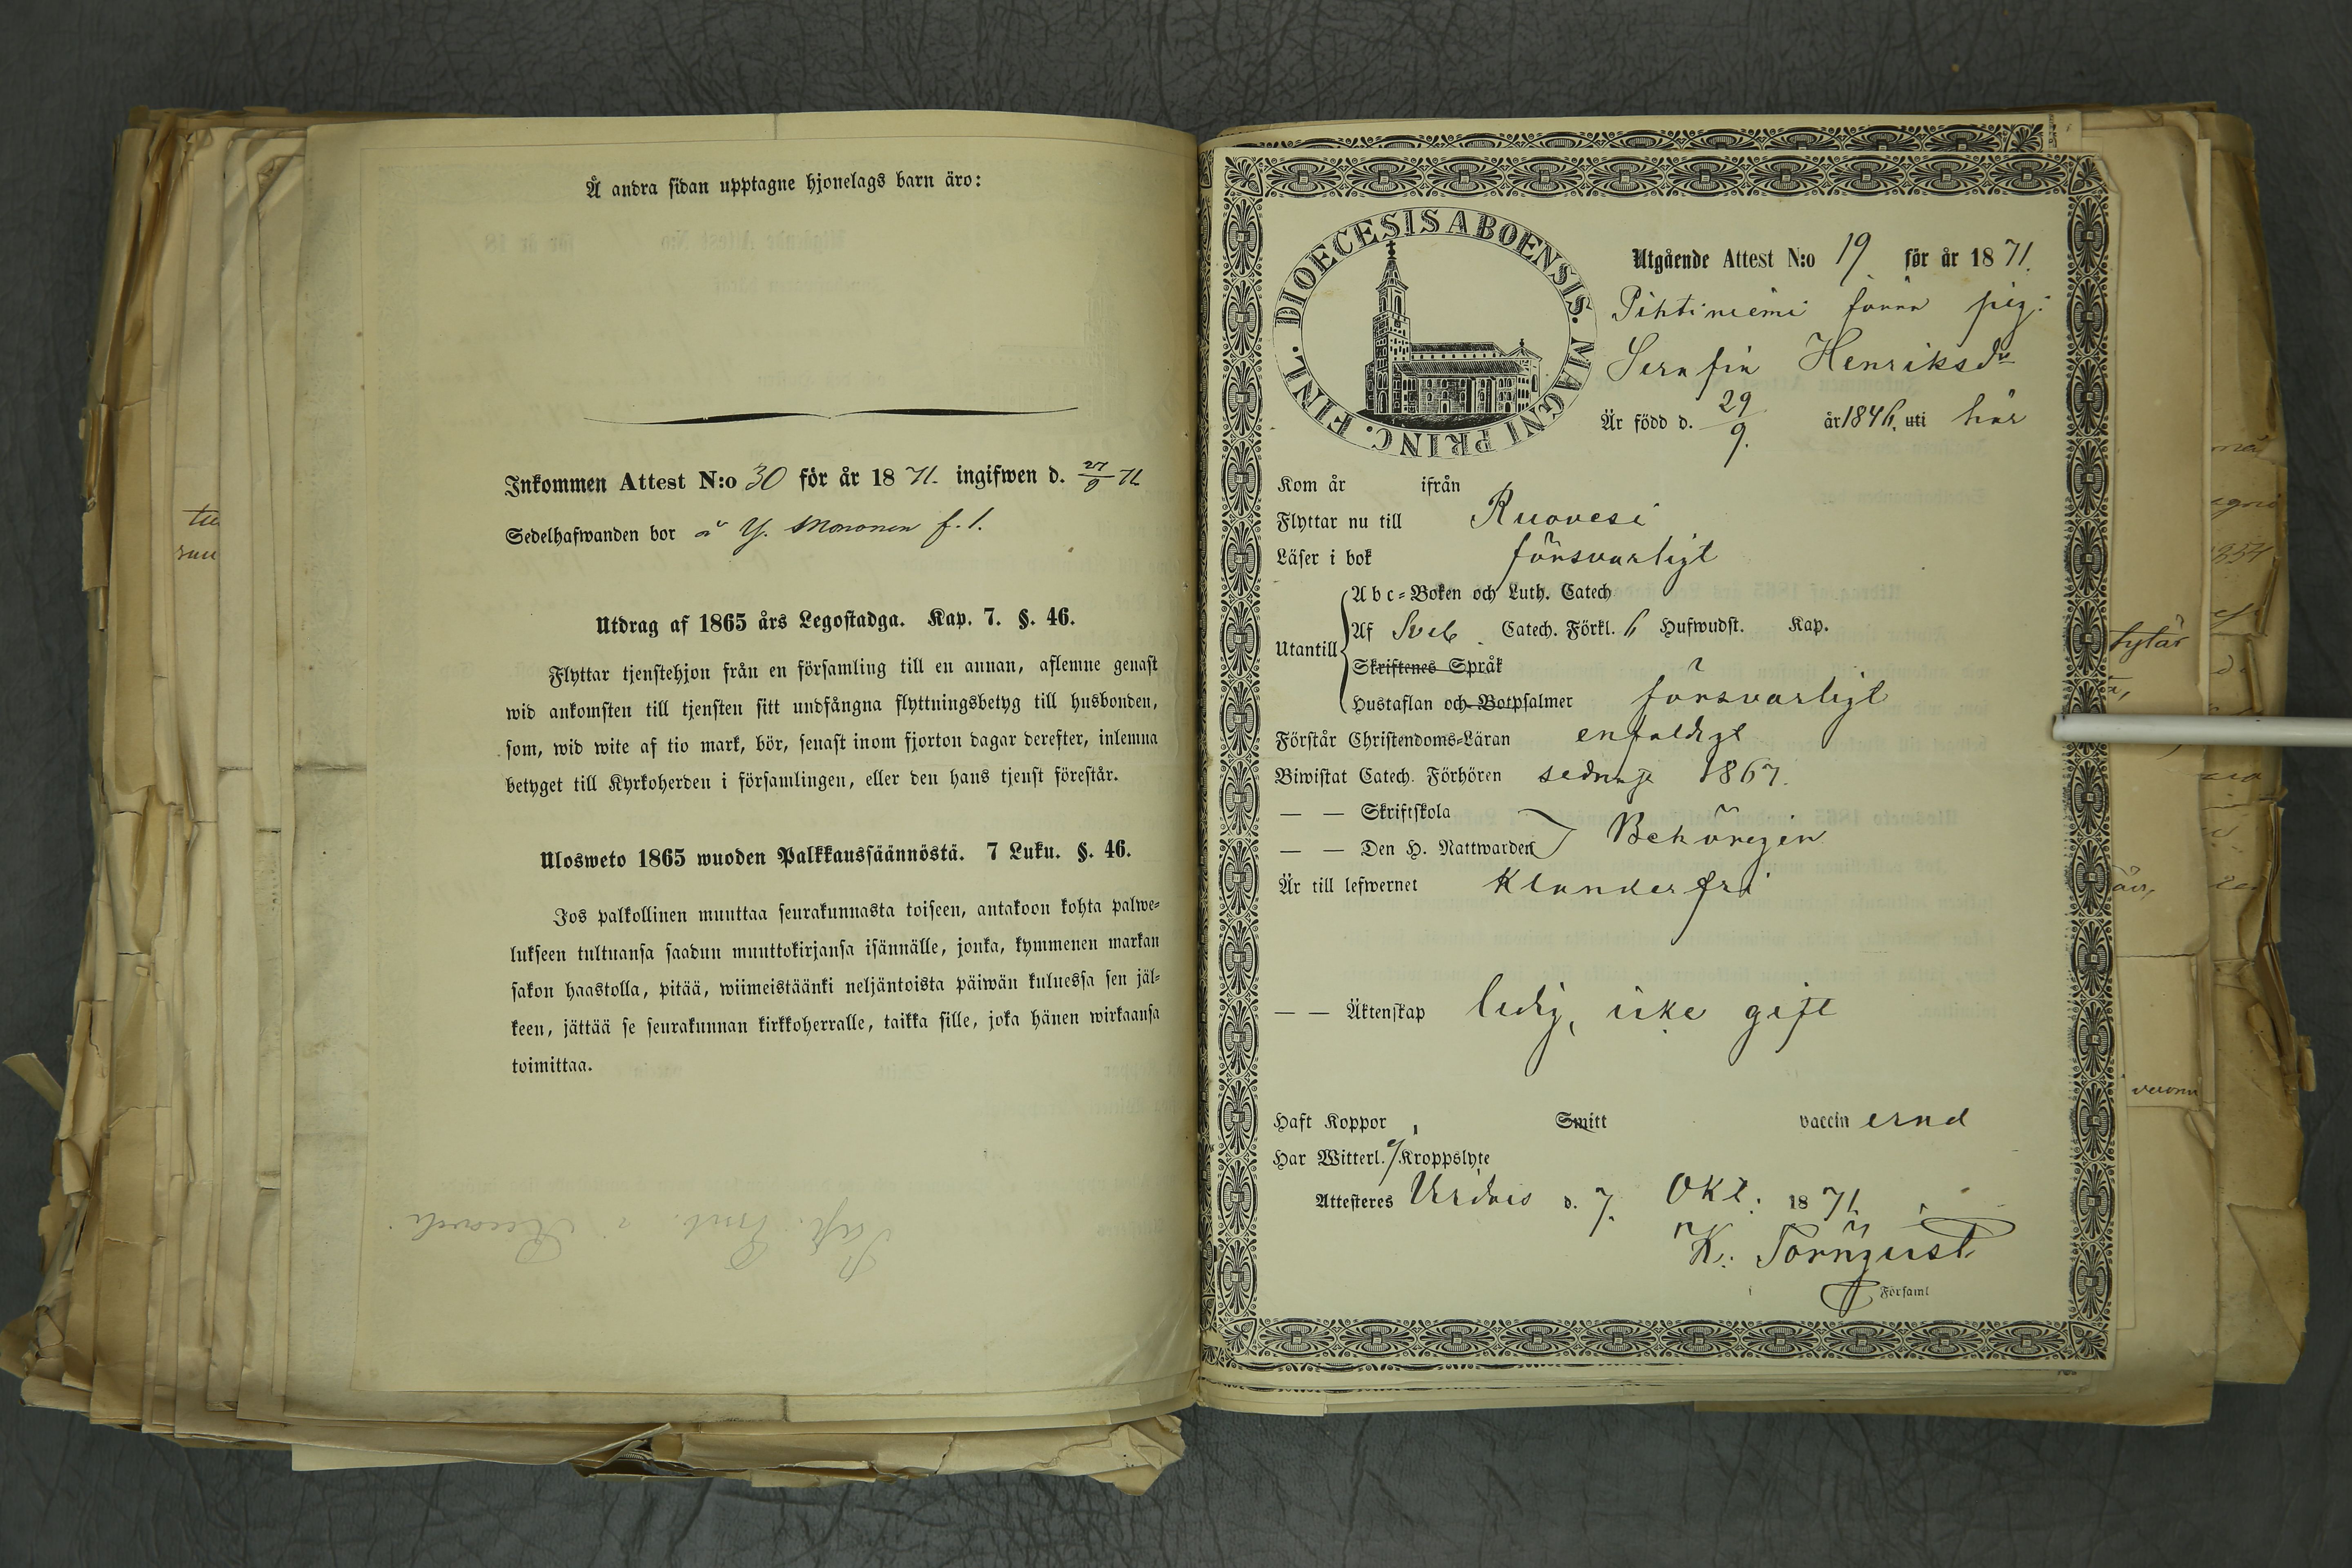 Å andra sidan upptagne hjonelags barn äro:
Inkommen Attest N:o 30 för år 1871. ingifwen d. 27/9 71
Sedelhafwanden bor å Y. Mononen f. l.
Utdrag af 1865 års Legostadga. Kap. 7. §. 46.
Flyttar tjenstehjon från en församling till en annan, aflemne genast
wid ankomsten till tjensten sitt undfångna flyttningsbetyg till husbonden,
som, wid wite af tio mark, bör, senast inom fjorton dagar derefter, inlemna
betyget till Kyrkoherden i församlingen, eller den hans tjenst förestår.
Ulosweto 1865 wuoden Palkkaussäännöstä. 7 Luku. §. 46.
Jos palkollinen muuttaa seurakunnasta toiseen, antakoon kohta palwe-
lukseen tultuansa saadun muuttokirjansa isännälle, jonka, kymmenen markan
sakon haastolla, pitää, wiimeistäänki neljäntoista päiwän kuluessa sen jäl-
keen, jättää se seurakunnan kirkkoherralle, taikka sille, joka hänen wirkaansa
toimittaa.
DIOECESIS ABOENSIS. MAGNI PRINC. FINL.
Utgående Attest N:o 19 för år 1871.
Pihtiniemi förra pig.
Serafin Henriksdr
Är född d. 29/9. år 1846. uti här
Kom år ifrån
Flyttar nu till Ruovesi
Läser i bok försvarligt
Utantill
Abc-Boken och Luth. Catech
Af Sveb. Catech. Förkl. 6 Hufwudst. Kap.
Skriftenes Språk
Hustaflan och Botpsalmer försvarligt
Förstår Christendoms-Läran enfaldigt
Biwistat Catech. Förhören sednast 1867.
— — Skriftskola
— — Den H. Nattwarden Behörigen
Är till lefwernet Klanderfri
— — Äktenskap ledig, icke gift
Haft Koppor Smitt vaccin erad
Har Witterl. ej Kroppslyte
Attesteres Urdais d. 7. Okt. 1871.
K. Törnqvist
Församl